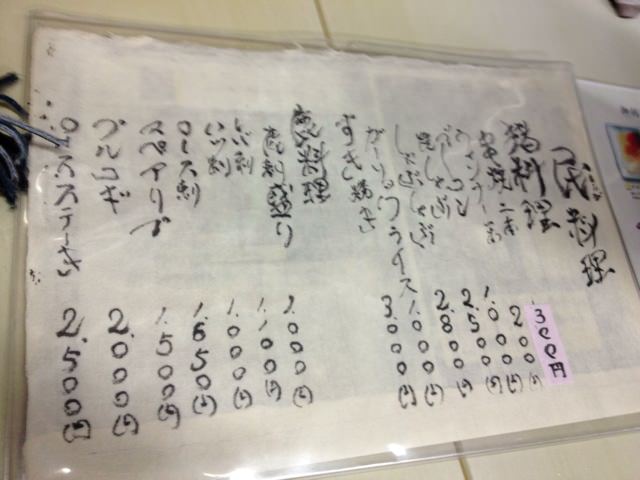 料理
料理
串焼 二本 300円
ウインナー 200円
ベーコン 1.000円
しゃぶ 2.500円
しゃぶしゃぶ 2.800円
ガーリックライス 1.000円
すき焼き 3.000円
料理
刺盛り 1.000円
レバ刺 1.100円
ハツ刺 1.000円
ロース刺 1.650円
スペアリブ 1.500円
プルコギ 2.000円
ロースステーキ 2.500円